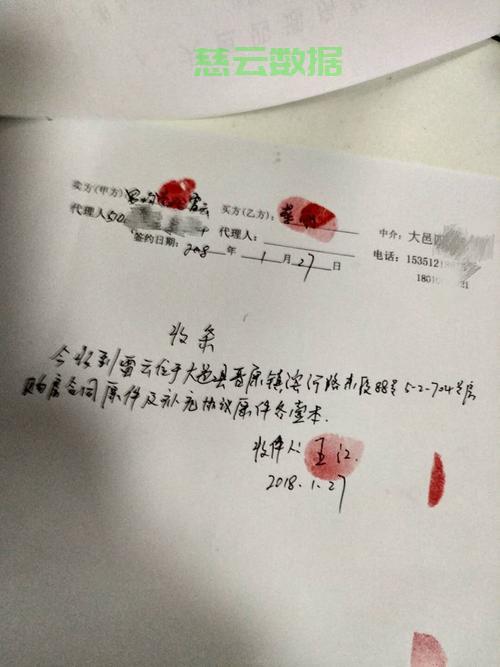 慈云数据
卖方(甲方): 雷云 买方(乙方):
代理人: 代理人: 中介: 大邑
签约日期: 2018 年 1 月 27 日 电话: 15351218
1801 21
收条
今收到雷云位于大邑县晋原镇滨河路末段88号5-2-704号房
购房合同原件及补充协议原件各壹本.
收件人 王江.
2018.1.27